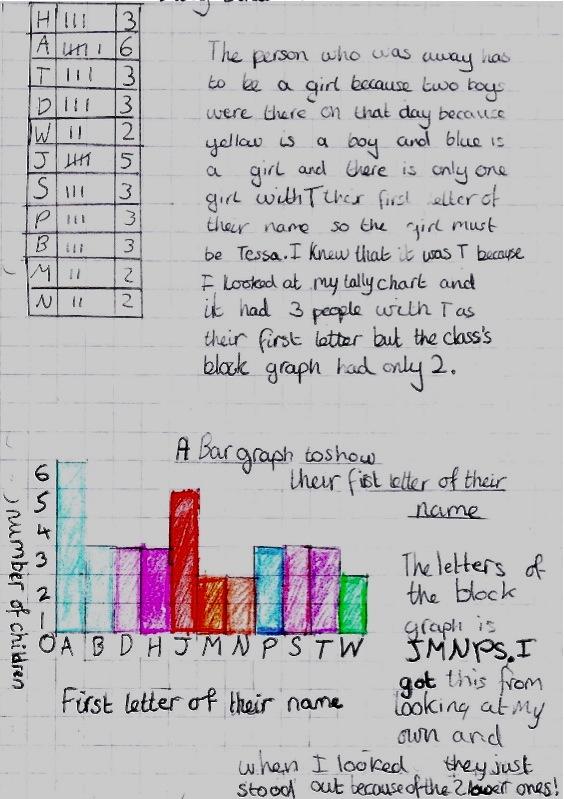 H 3
A 6
T 3
D 3
W 2
J 5
S 3
P 3
B 3
M 2
N 2
The person who was away has
to be a girl because two boys
were there on that day because
yellow is a boy and blue is
a girl and there is only one
girl with T their first letter of
their name so the girl must
be Tessa. I knew that it was T because
I looked at my tally chart and
it had 3 people with T as
their first letter but the class's
block graph had only 2.
A Bar graph to show
their fist letter of their
name
6
5
4
3
2
1
0
number of children
A B D H J M N P S T W
First letter of their name
The letters of
the block
graph is
JMNPS. I
got this from
looking at my
own and
when I looked they just
stood out because of the 2 lowest ones!